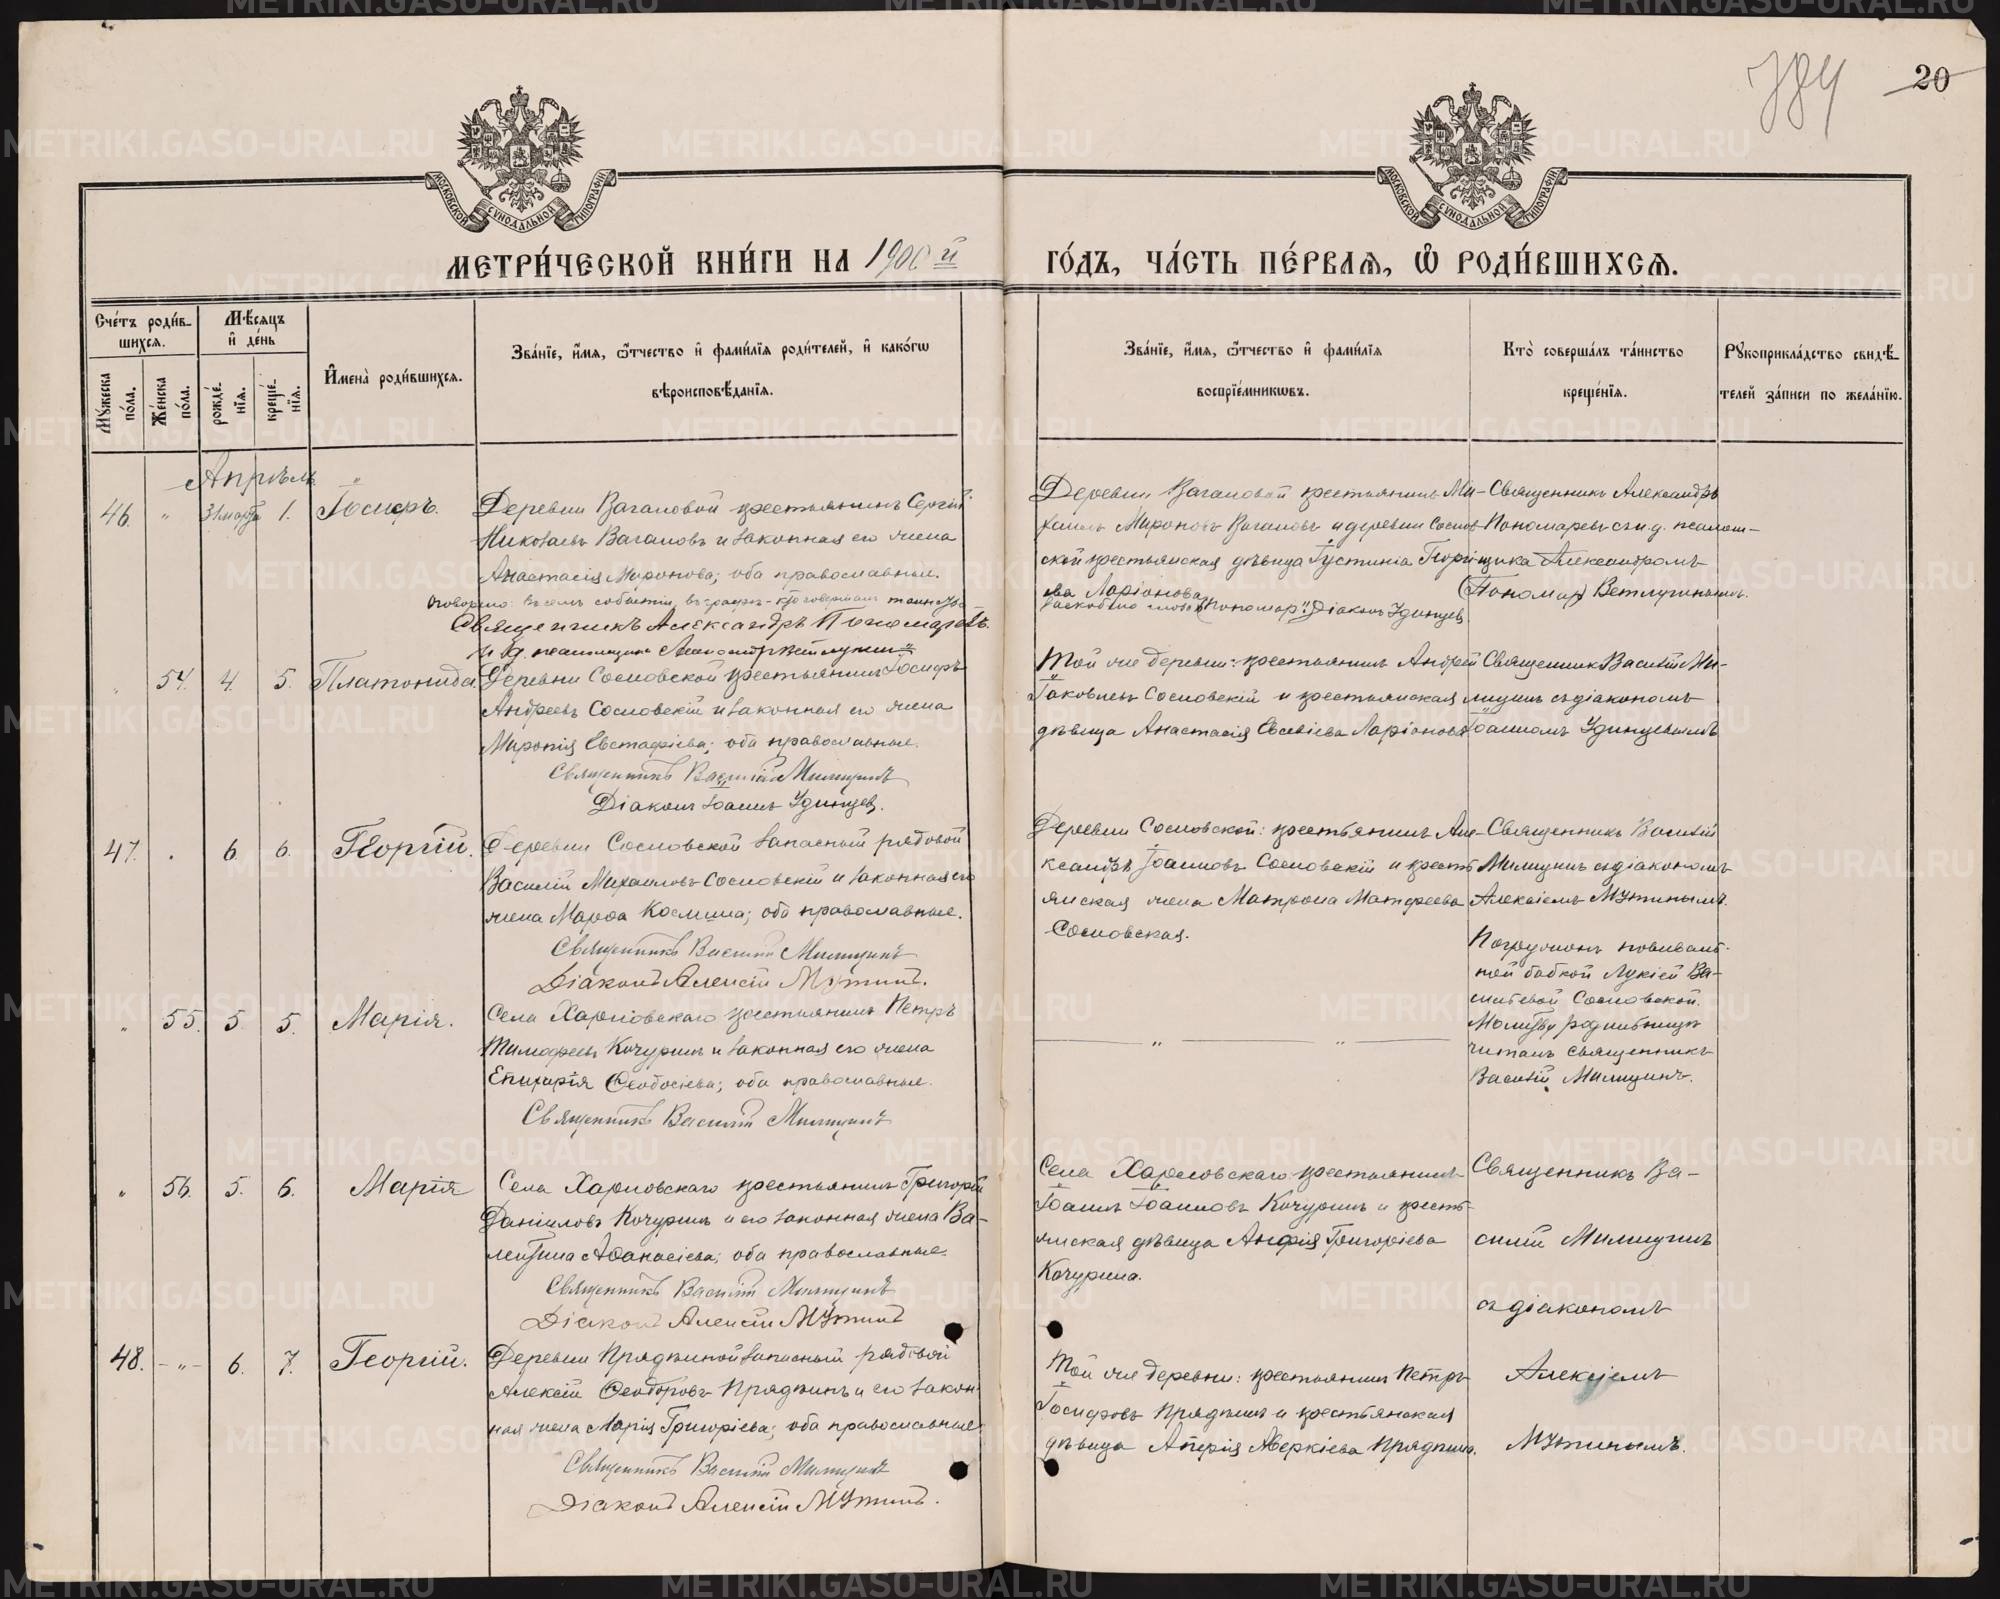 784 20
МОСКОВСКОЙ СУНОДАЛЬНОЙ ТИПОГРАФІИ
МОСКОВСКОЙ СУНОДАЛЬНОЙ ТИПОГРАФІИ
МЕТРИ́ЧЕСКОЙ КНИ́ГИ НА 1900й
ГО́ДЪ, ЧА́СТЬ ПЕ́РВАѦ, Ѽ РОДИ́ВШИХСѦ.
Сче́тъ роди́в-
шихсѧ.
Мѣ́сѧцъ
и҆ де́нь
Мꙋ́жеска по́ла.
Же́нска по́ла.
рожде́нїѧ.
креще́нїѧ.
И҆мена̀ роди́вшихсѧ.
Зва́нїе, и҆́мѧ, ѻ҆́тчество и҆ фами́лїѧ роди́телей, и҆ како́гѡ
вѣроисповѣ́данїѧ.
Зва́нїе, и҆́мѧ, ѻ҆́тчество и҆ фами́лїѧ
воспрїе́мникѡвъ.
Кто̀ соверша́лъ та́инство
креще́нїѧ.
Рꙋкоприкла́дство свидѣ́-
телей за́писи по жела́нїю.
Апрѣль
46. " 31 марта 1. Іосифъ.
Деревни Вагановой крестьянинъ Сергій
Николаевъ Вагановъ и законная его жена
Анастасія Миронова; оба православные.
Оговорено: въ семъ событіи, въ графѣ - кто совершалъ таинство
Священникъ Александръ Пономаревъ.
И. д. псаломщика Александръ Ветлугинъ
Деревни Вагановой крестьянинъ Ми-
хаилъ Мироновъ Вагановъ и деревни Соснов-
ской крестьянская дѣвица Іустинія Георгі-
ева Ларіонова
"Пономар". Діаконъ Удинцев.
Священникъ Александръ
Пономаревъ съ и. д. псалом-
щика Александромъ
(Пономар) Ветлугинымъ.
" 54. 4. 5. Платонида.
Деревни Сосновской крестьянинъ Іосифъ
Андреевъ Сосновскій и законная его жена
Миропія Евстафіева; оба православные.
Священникъ Василій Милицинъ
Діаконъ Іоаннъ Удинцев.
Той же деревни: крестьянинъ Андрей
Іаковлевъ Сосновскій и крестьянская
дѣвица Анастасія Евсевіева Ларіонова
Священник Василій Ми-
лицинъ съ діакономъ
Іоанномъ Удинцевымъ
47. . 6. 6. Георгій.
Деревни Сосновской запасный рядовой
Василій Михаиловъ Сосновскій и законная его
жена Марѳа Космина; оба православные.
Священникъ Василій Милицинъ
Діаконъ Алексій Мутинъ.
Деревни Сосновской: крестьянинъ Але-
ксандръ Іоанновъ Сосновскій и кресть-
янская жена Матрона Матфеева
Сосновская.
Священникъ Василій
Милицинъ съ діакономъ
Алексіемъ Мутинымъ.
" 55. 5. 5. Марія.
Села Харловскаго крестьянинъ Петръ
Тимофеевъ Кочуринъ и законная его жена
Епихарія Ѳеодосіева; оба православные.
Священникъ Василій Милицинъ
" "
Погружонъ повиваль-
ной бабкой Лукіей Ва-
сильевой Сосновской.
Молитву родильницѣ
читалъ священникъ
Василій Милицинъ.
" 56. 5. 6. Марія
Села Харловскаго крестьянинъ Григорій
Даніиловъ Кочуринъ и его законная жена Ва-
лентина Аѳанасіева; оба православные.
Священникъ Василій Милицинъ
Діаконъ Алексій Мутинъ
Села Харловскаго крестьянинъ
Іоаннъ Іоанновъ Кочуринъ и кресть-
янская дѣвица Анфія Григоріева
Кочурина.
Священникъ Ва-
силій Милицинъ
съ діакономъ
48. - " - 6. 7. Георгій.
Деревни Прядкиной запасный рядовой
Алексій Ѳеодоровъ Прядкинъ и его закон-
ная жена Марія Григоріева; оба православные
Священникъ Василій Милицинъ
Діаконъ Алексій Мутинъ.
Той же деревни: крестьянинъ Петръ
Іосифовъ Прядкинъ и крестьянская
дѣвица Аверкіева Прядкина.
Алексіемъ
Мутинымъ.